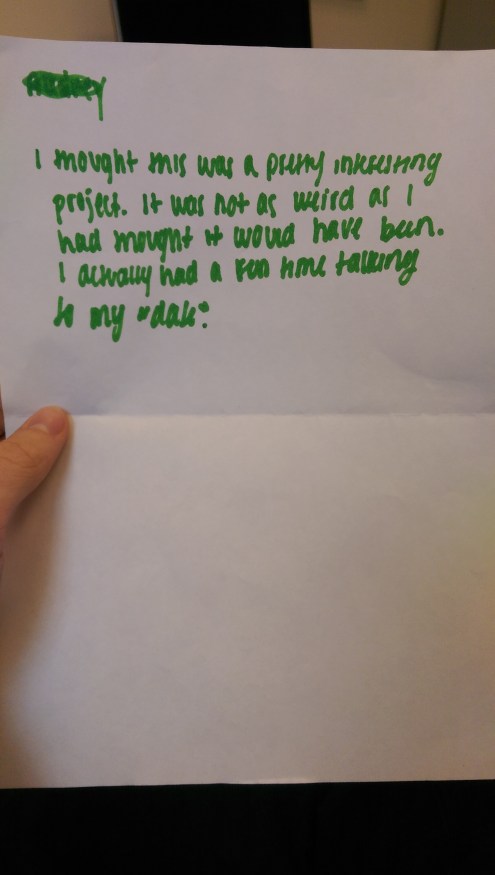 I thought this was a pretty interesting
project. It was not as weird as I
had thought it would have been.
I actually had a fun time talking
to my "date".